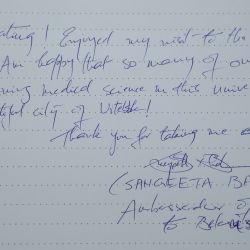 ating! Enjoyed my visit to the
Am happy that so many of our
ning medical science in this unive
tiful city of Vitebsk!
Thank you for taking me
(SANGEETA BA
Ambassador of
to Belarus